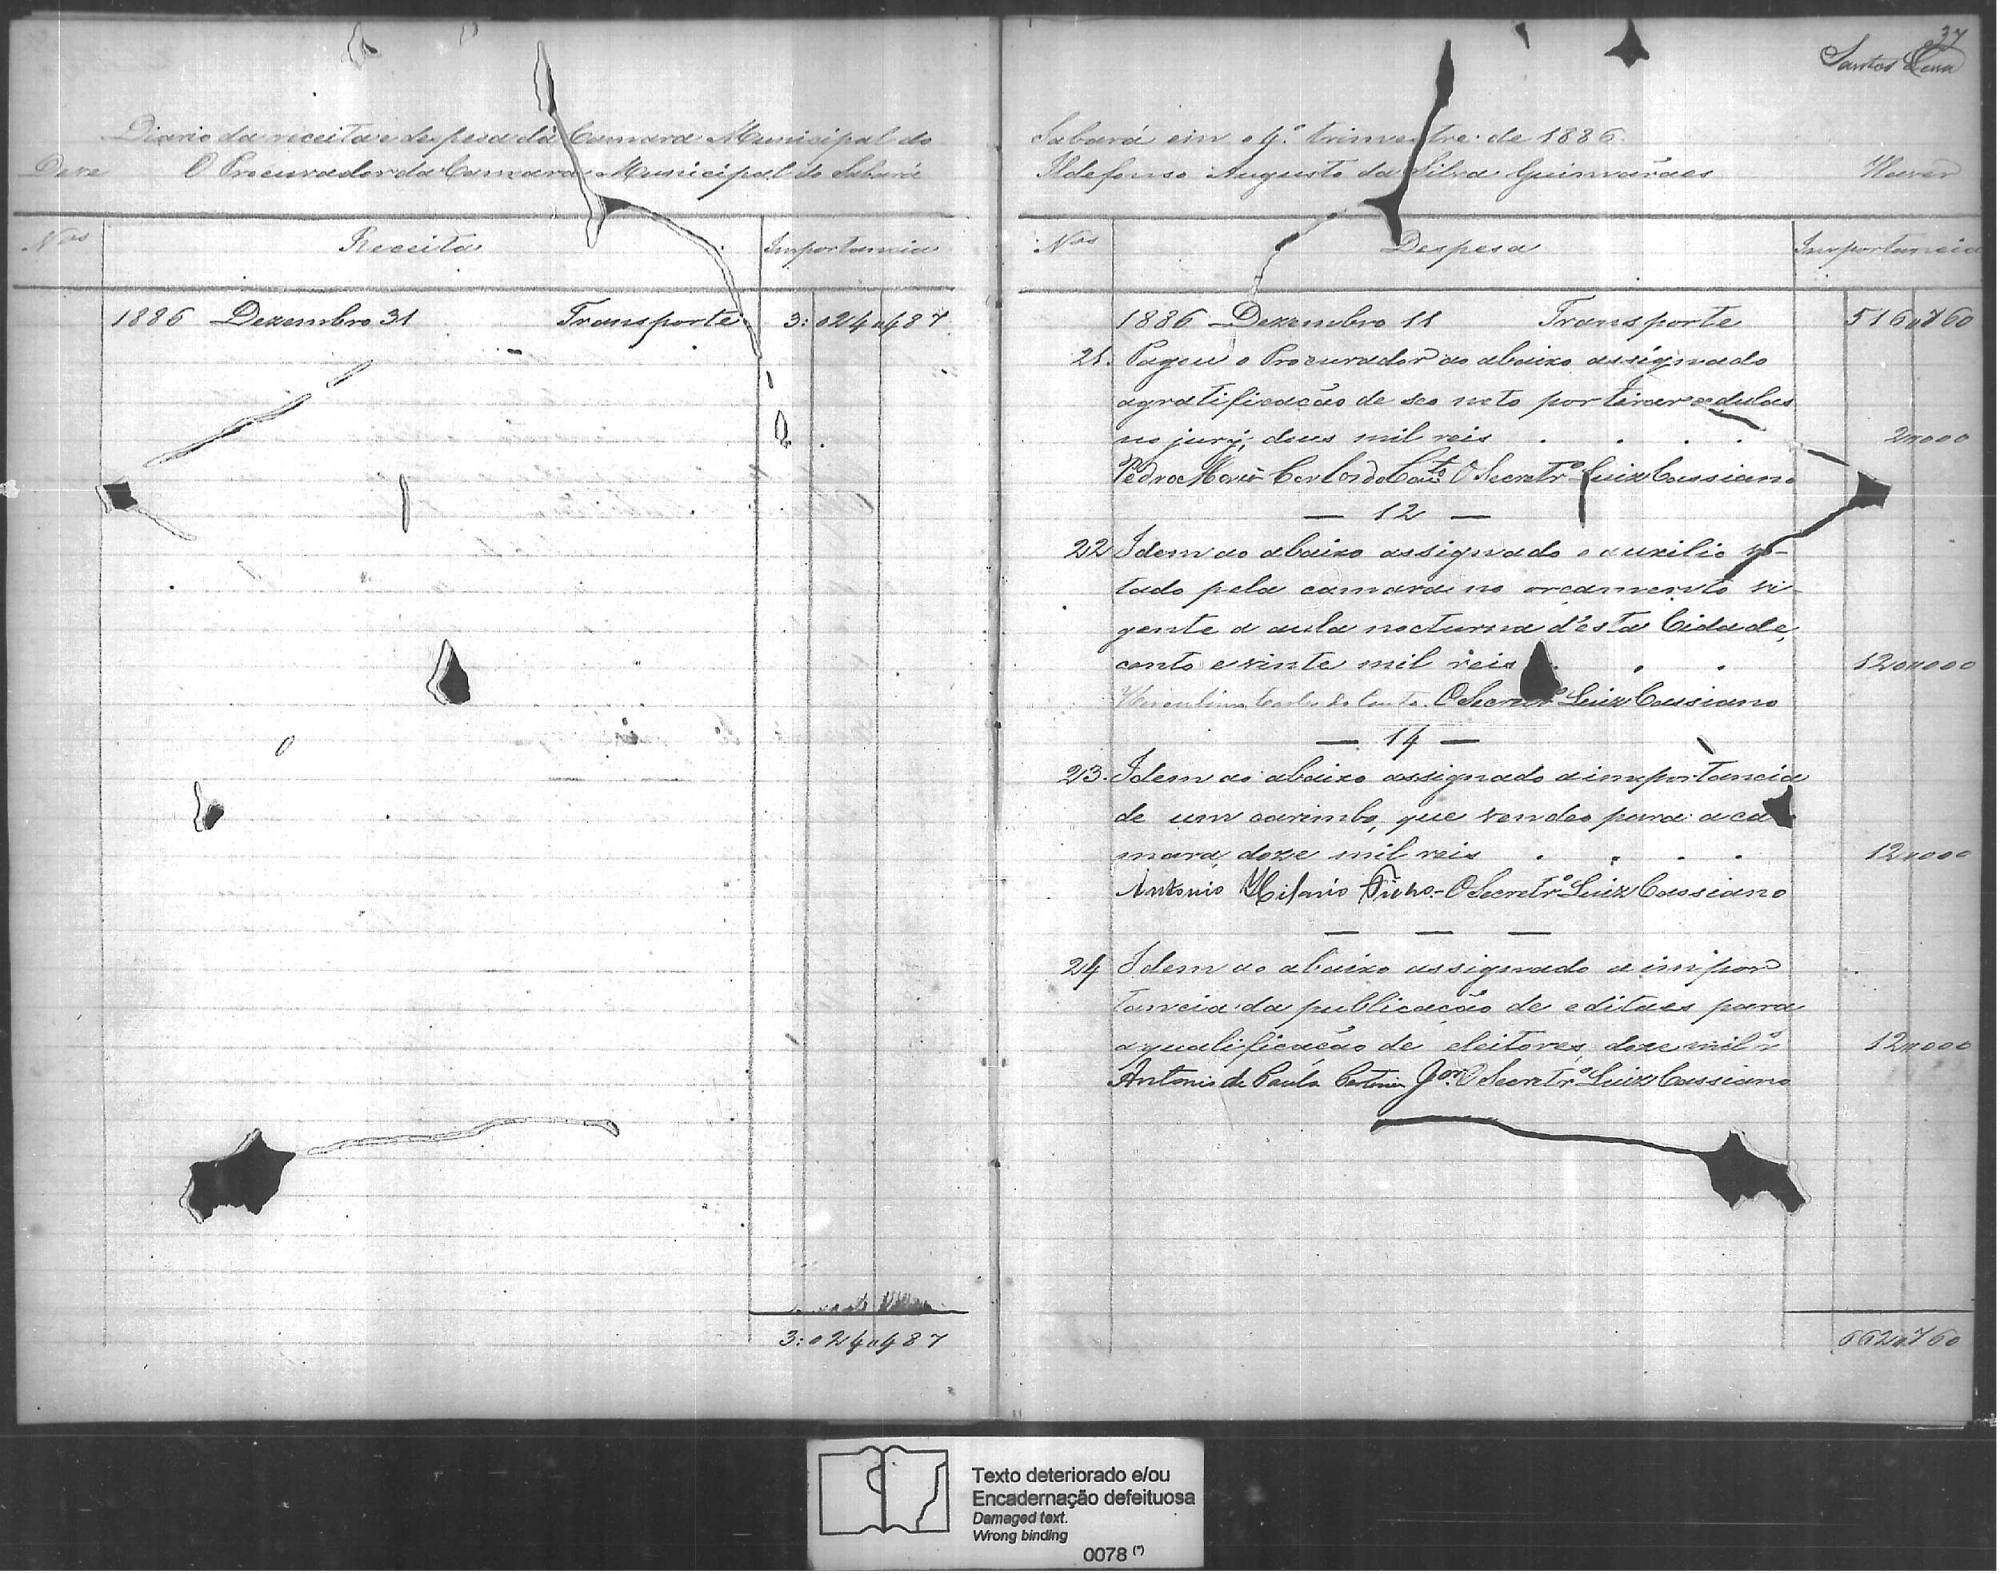 Diario da receita e despesa da Camara Municipal do
Deve O Procurador da Camara Municipal do Sabará
Nos Receita Importancia
1886 Dezembro 31 Transporte 3:024$487
3:024$487
37
Santos Lima
Sabará em o 4º trimestre de 1886.
Ildefonso Augusto da Silva Guimarães Haver
Nos Despesa Importancia
1886 Dezembro 11 Transporte 516$760
21. Pagou o Procurador ao abaixo assignado
a gratificação de seo neto por tirar cedulas
no jury, dous mil reis . . . . 2$000
Pedro Maria O Secretrº Luiz Cassiano
— 12 —
22 Idem ao abaixo assignado o auxilio vo-
tado pela camara no orcamento vi-
gente a aula nocturna d'esta Cidade,
cento e vinte mil reis . . . 120$000
O Secretrº Luiz Cassiano
— 14 —
23. Idem ao abaixo assignado a importancia
de um carimbo, que vendeo para a ca
mara, doze mil reis . . . . 12$000
Antonio Hilario O Secretrº Luiz Cassiano
— — —
24 Idem ao abaixo assignado a impor
tancia da publicação de editaes para
a qualificacão de eleitores, doze mil rs 12$000
Antonio de Paula Jor O Secretrº Luiz Cassiano
662$760
Texto deteriorado e/ou
Encadernação defeituosa
Damaged text.
Wrong binding
0078 (*)